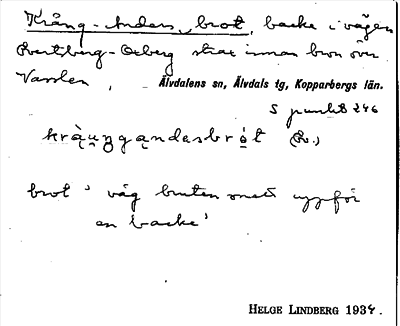 Krång-Anders brot, backe i vägen
Evertsberg-Oxberg strax innan bron över
Vasslen,
Älvdalens sn, Älvdals tg, Kopparbergs län.
S punkt 246
kràu̯ŋgąndasbrót (Ev.)
brot 'väg bruten rakt uppför
en backe'
HELGE LINDBERG 1934.